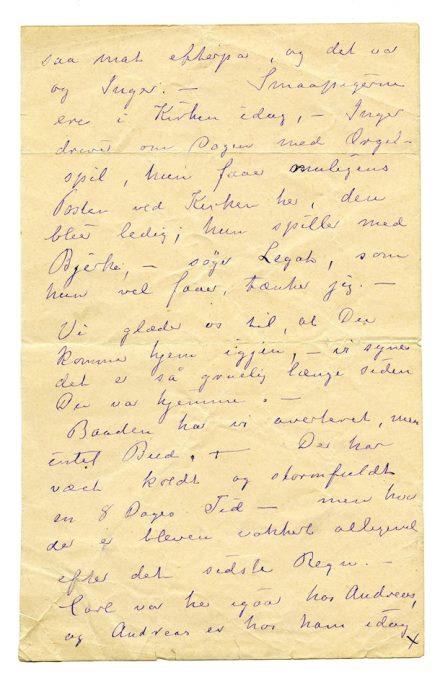 saa mat efterpa, og det var
og Inger. — Smaapigerne
ere i Kirken idag, — Inger
driver om Dagen med Orgel-
spil, hun faar muligens
Posten ved Kirken her, den
blir ledig; hun spiller med
Bjerke, — søger Legat, som
hun vel faar, tænker jeg. —
Vi glæder os til, at Du
kommer hjem igjen, — vi synes
det er så gruelig længe siden
Du var hjemme. —
Baaden har vi averteret, men
intet Bud. + Det har
vært koldt og stormfuldt
en 8 Dages Tid — men hvor
der er bleven vakkert alligevel
efter det sidste Regn. —
Carl var her igaar hos Andreas,
og Andreas er hos ham idag x